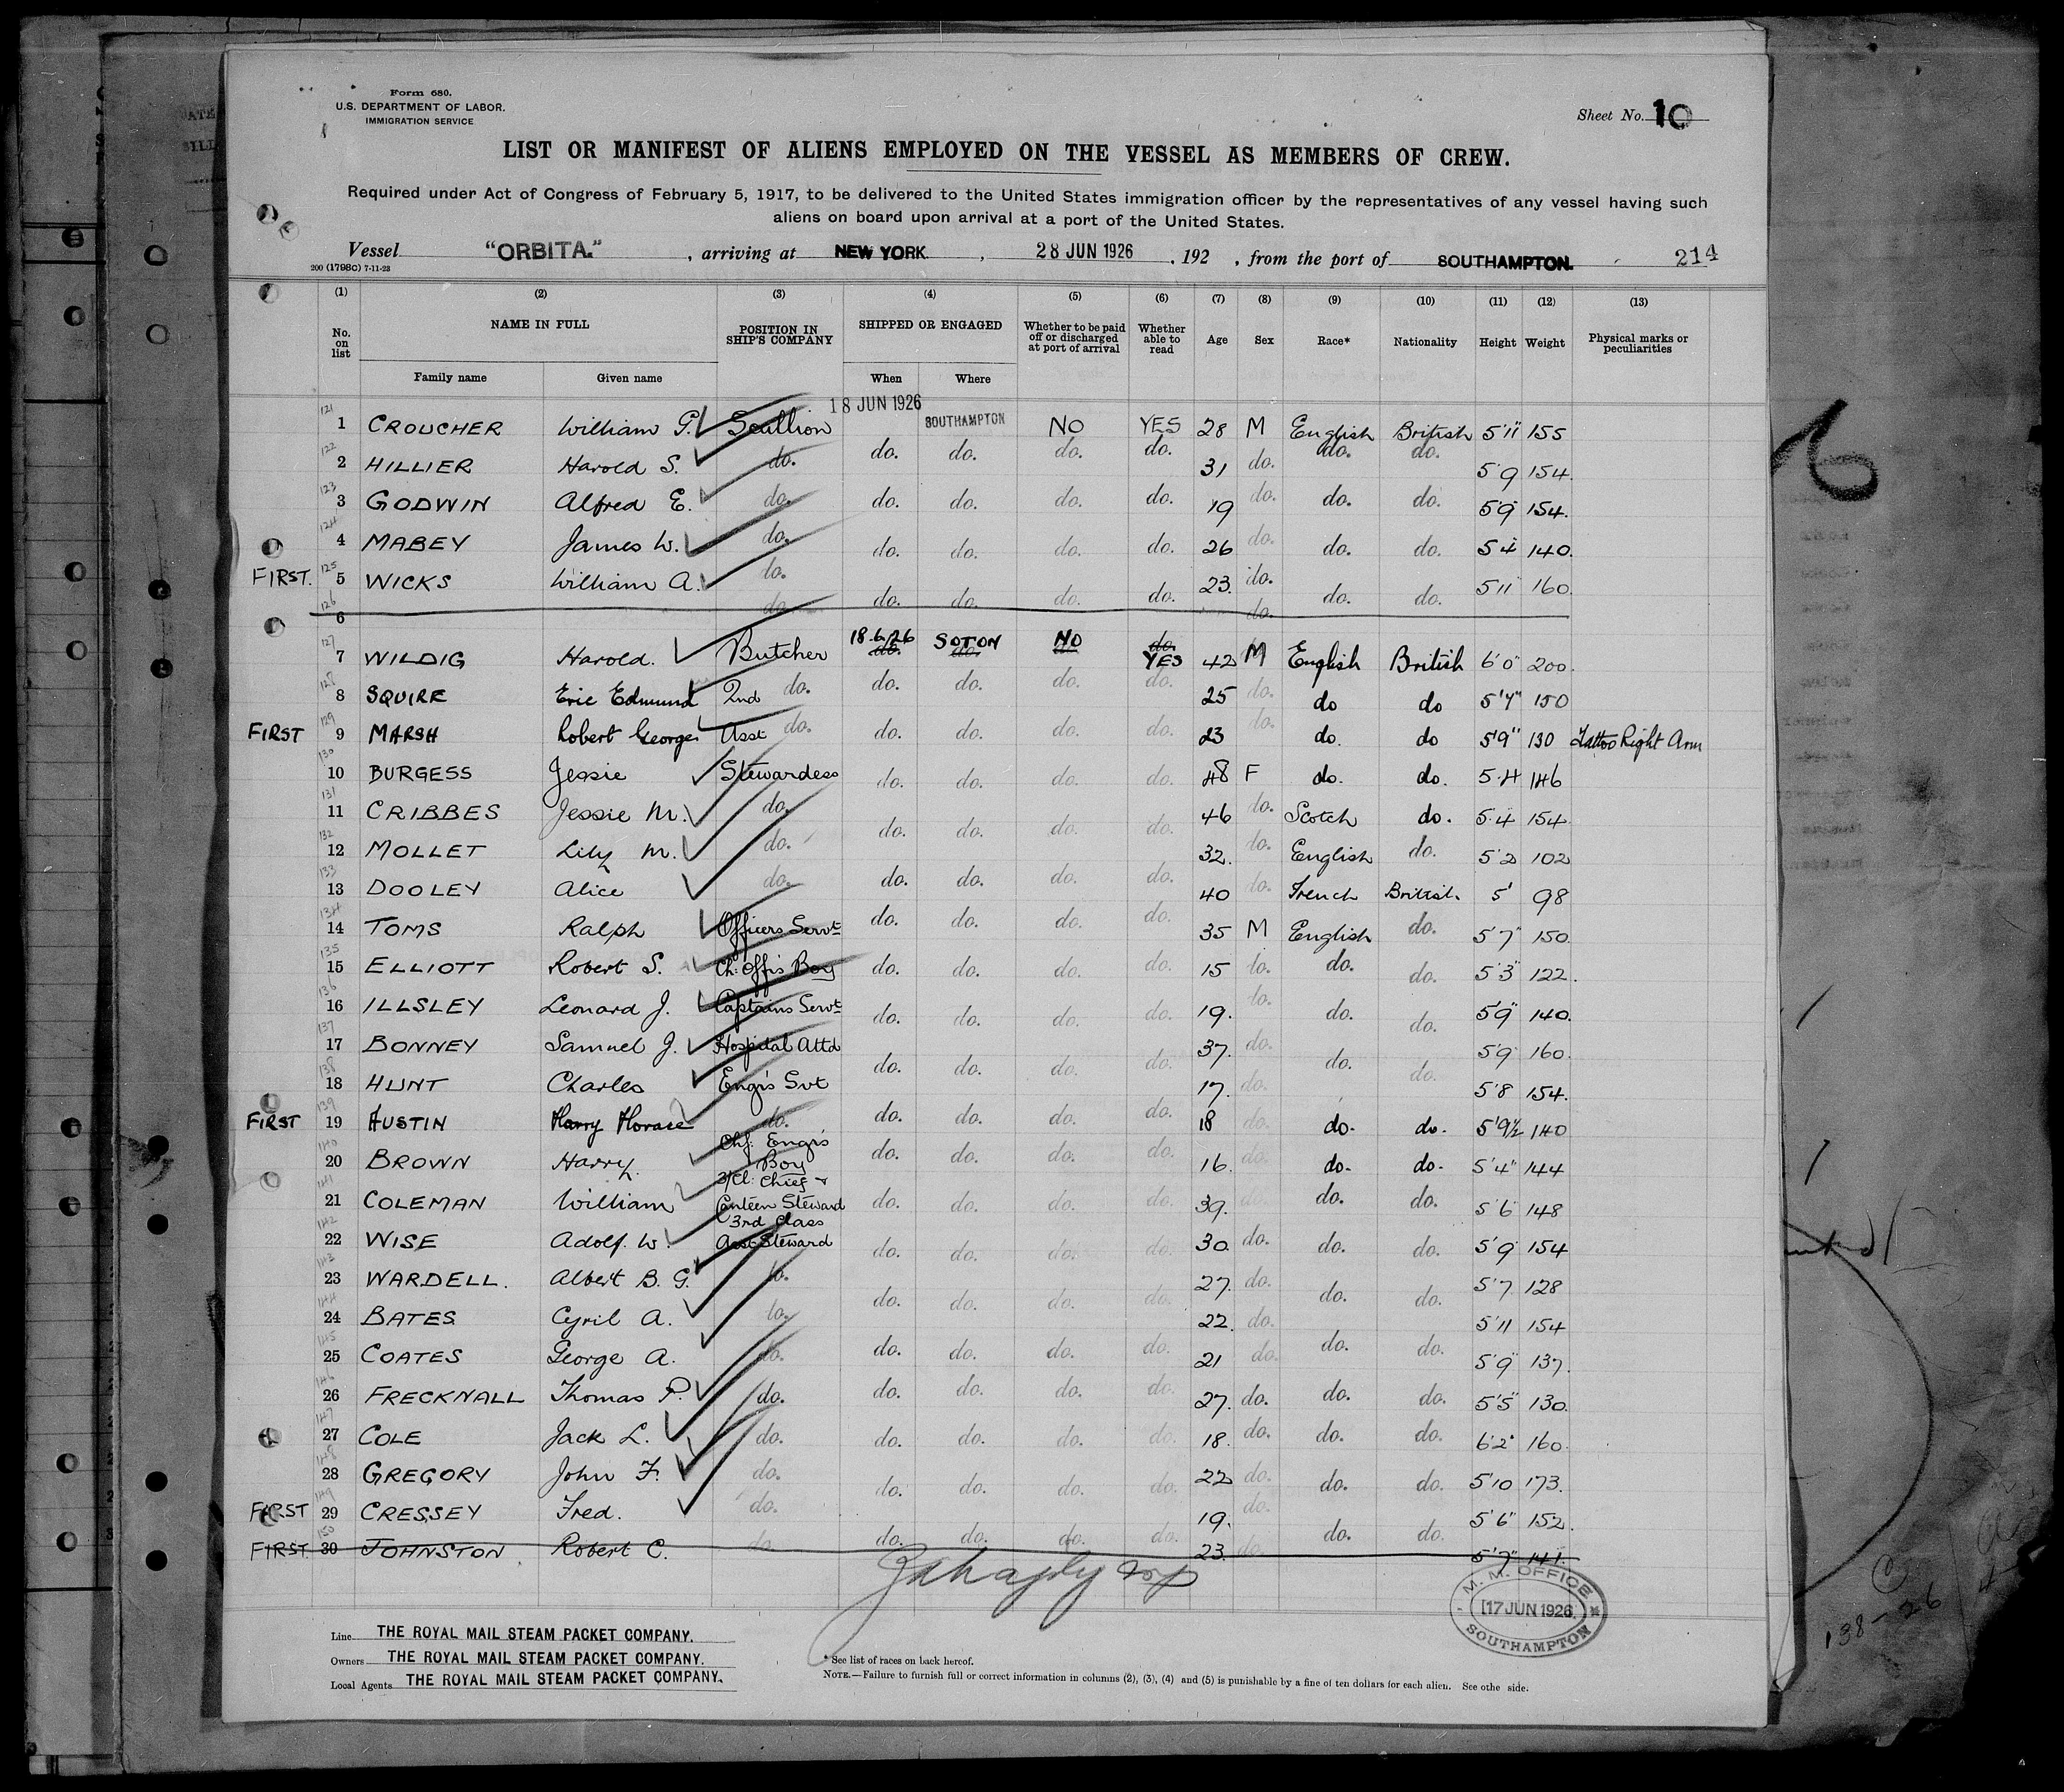 Form 680.
U.S. DEPARTMENT OF LABOR.
IMMIGRATION SERVICE
Sheet No. 10
LIST OR MANIFEST OF ALIENS EMPLOYED ON THE VESSEL AS MEMBERS OF CREW.
Required under Act of Congress of February 5, 1917, to be delivered to the United States immigration officer by the representatives of any vessel having such
aliens on board upon arrival at a port of the United States.
Vessel "ORBITA." , arriving at NEW YORK , 28 JUN 1926 , 192 , from the port of SOUTHAMPTON. 214
200 (1798C) 7-11-23
(1) (2) (3) (4) (5) (6) (7) (8) (9) (10) (11) (12) (13)
No. on list NAME IN FULL POSITION IN SHIP'S COMPANY SHIPPED OR ENGAGED Whether to be paid off or discharged at port of arrival Whether able to read Age Sex Race* Nationality Height Weight Physical marks or peculiarities
Family name Given name When Where
121 1 CROUCHER William G. Scullion 18 JUN 1926 SOUTHAMPTON NO YES 28 M English British 5'11" 155
122 2 HILLIER Harold S. do. do. do. do. do. 31 do. do. do. 5'9 154.
123 3 GODWIN Alfred E. do. do. do. do. do. 19 do. do. do. 5'9" 154.
124 4 MABEY James W. do. do. do. do. do. 26 do. do. do. 5'4 140.
FIRST. 125 5 WICKS William A. do. do. do. do. do. 23. do. do. do. 5'11" 160.
126 6 do. do.
127 7 WILDIG Harold. Butcher 18.6.26 do. SOTON do. NO do. YES 42 M English British 6'0" 200.
128 8 SQUIRE Eric Edmund 2nd do. do. do. do. do. 25 do. do do 5'4" 150
FIRST 129 9 MARSH Robert George Asst do. do. do. do. do. 23 do. do. do 5'9" 130 Tattoo Right Arm
130 10 BURGESS Jessie Stewardess do. do. do. do. 48 F do. do. 5.4 146
131 11 CRIBBES Jessie M. do. do. do. do. do. 46 do. Scotch do. 5.4 154
132 12 MOLLET Lily M. do. do. do. do. do. 32. do. English do. 5'2 102
133 13 DOOLEY Alice do. do. do. do. do. 40 do. French British. 5' 98
134 14 TOMS Ralph Officers Servt do. do. do. do. 35 M English do. 5'7" 150.
135 15 ELLIOTT Robert S. Ch: Off's Boy do. do. do. do. 15 do. do. do. 5'3" 122.
136 16 ILLSLEY Leonard J. Captains Servt do. do. do. do. 19. do. do. do. 5'9" 140.
137 17 BONNEY Samuel J. Hospital Attd do. do. do. do. 37. do. do. do. 5'9 160.
138 18 HUNT Charles Engr's Svt do. do. do. do. 17. do. 5'8 154.
FIRST 139 19 AUSTIN Harry Horace do. do. do. do. do. 18 do. do. do. 5'9½ 140
140 20 BROWN Harry. Chf. Engr's Boy do. do. do. do. 16. do. do. do. 5'4" 144
141 21 COLEMAN William 3/Cl: Chief & Canteen Steward do. do. do. do. 39. do. do. do. 5'6" 148
142 22 WISE Adolf. W. 3rd Class Asst Steward do. do. do. do. 30. do. do. do. 5'9 154
143 23 WARDELL. Albert B. G. do. do. do. do. do. 27. do. do. do. 5'7 128
144 24 BATES Cyril A. do. 22. do. 5'11 154
145 25 COATES George A. do. do. do. do. do. 21 do. do. do. 5'9" 137.
146 26 FRECKNALL Thomas P. do. do. do. do. do. 27. do. do. do. 5'5" 130.
147 27 COLE Jack L. do. do. do. do. do. 18. do. do. do. 6'2" 160.
148 28 GREGORY John F. do. do. do. do. do. 22 do. do. do. 5'10 173.
FIRST 149 29 CRESSEY Fred. do. 19. do. 5'6" 152.
FIRST. 150 30 JOHNSTON Robert C. do. do. do. do. do. 23. do. do. do. 5'7" 141.
M. M. OFFICE
17 JUN 1926
SOUTHAMPTON
Line THE ROYAL MAIL STEAM PACKET COMPANY.
Owners THE ROYAL MAIL STEAM PACKET COMPANY.
Local Agents THE ROYAL MAIL STEAM PACKET COMPANY.
* See list of races on back hereof.
NOTE.—Failure to furnish full or correct information in columns (2), (3), (4) and (5) is punishable by a fine of ten dollars for each alien. See othe side.
138-26